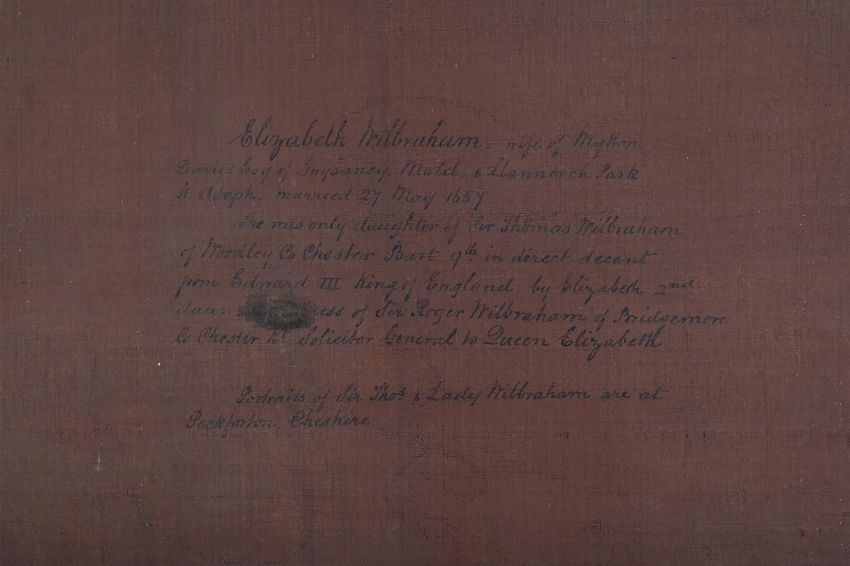 Elizabeth Wilbraham. wife of Mytton
Davies Esq of Gnysaney Mold. & Llannerch Park
St. Asaph. married 27 May 1657
She was only daughter of Sir Thomas Wilbraham
of Woodley Co Chester Bart 9th in direct decent
from Edward III King of England by Elizabeth 2nd
of Sir Roger Wilbraham of Bridgemore
Co Chester Kt Solicitor General to Queen Elizabeth
Portraits of Sir Thos & Lady Wilbraham are at
Peckforton. Cheshire.